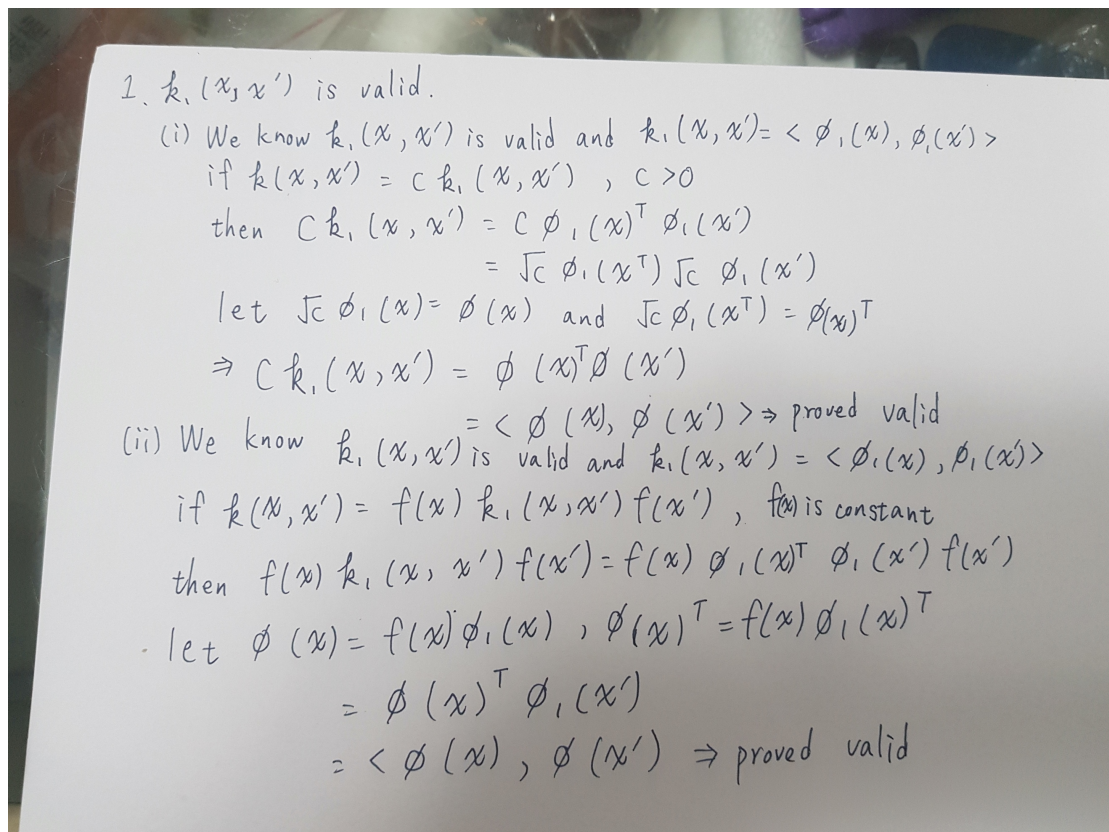 1. k₁(x, x') is valid.
(i) We know k₁(x, x') is valid and k₁(x, x') = < ø₁(x), ø₁(x') >
if k(x, x') = c k₁(x, x') , c > 0
then c k₁(x, x') = c ø₁(x)ᵀ ø₁(x')
= √c ø₁(xᵀ) √c ø₁(x')
let √c ø₁(x) = ø(x) and √c ø₁(xᵀ) = ø(x)ᵀ
⇒ c k₁(x, x') = ø(x)ᵀ ø(x')
= < ø(x), ø(x') > ⇒ proved valid
(ii) We know k₁(x, x') is valid and k₁(x, x') = < ø₁(x), ø₁(x') >
if k(x, x') = f(x) k₁(x, x') f(x') , f(x) is constant
then f(x) k₁(x, x') f(x') = f(x) ø₁(x)ᵀ ø₁(x') f(x')
let ø(x) = f(x) ø₁(x) , ø(x)ᵀ = f(x) ø₁(x)ᵀ
= ø(x)ᵀ ø₁(x')
= < ø(x) , ø(x') ⇒ proved valid